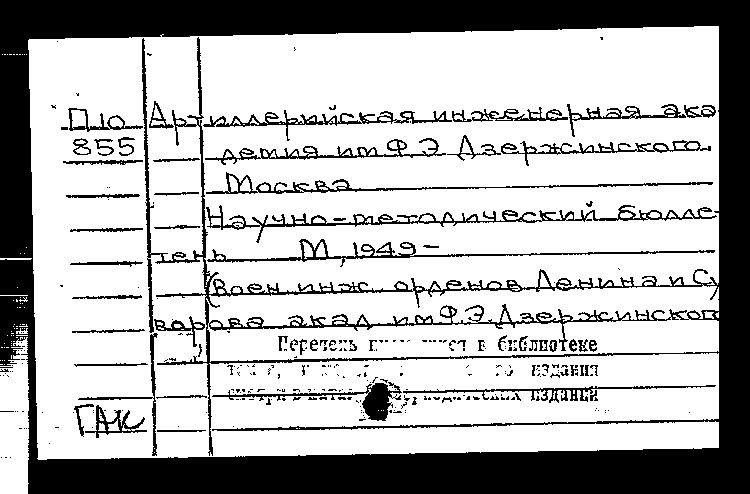 П10 Артиллерийская инженерная ака
855 демия им Ф.Э Дзержинского.
Москва
Научно-методический бюлле-
тень М, 1949-
(Воен инж. орденов Ленина и Су
ворова акад им Ф.Э. Дзержинского
)
Перечень в библиотеке
издания
изданий
ГАК